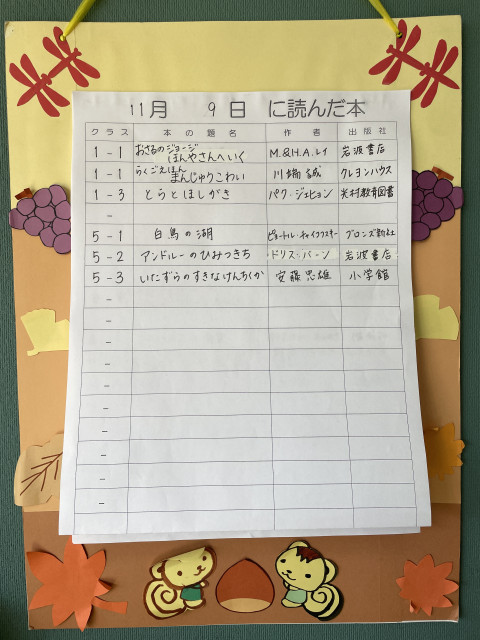 11月 9日 に読んだ本
クラス 本の題名 作者 出版社
1-1 おさるのジョージ ほんやさんへいく M.&H.A.レイ 岩波書店
1-1 らくごえほん まんじゅうこわい 川端誠 クレヨンハウス
1-3 とらとほしがき パク・ジェヒョン 光村教育図書
-
5-1 白鳥の湖 ピョートル・チャイコフスキー ブロンズ新社
5-2 アンドルーのひみつきち ドリス・バーン 岩波書店
5-3 いたずらのすきなけんちくか 安藤忠雄 小学館
-
-
-
-
-
-
-
-
-
-